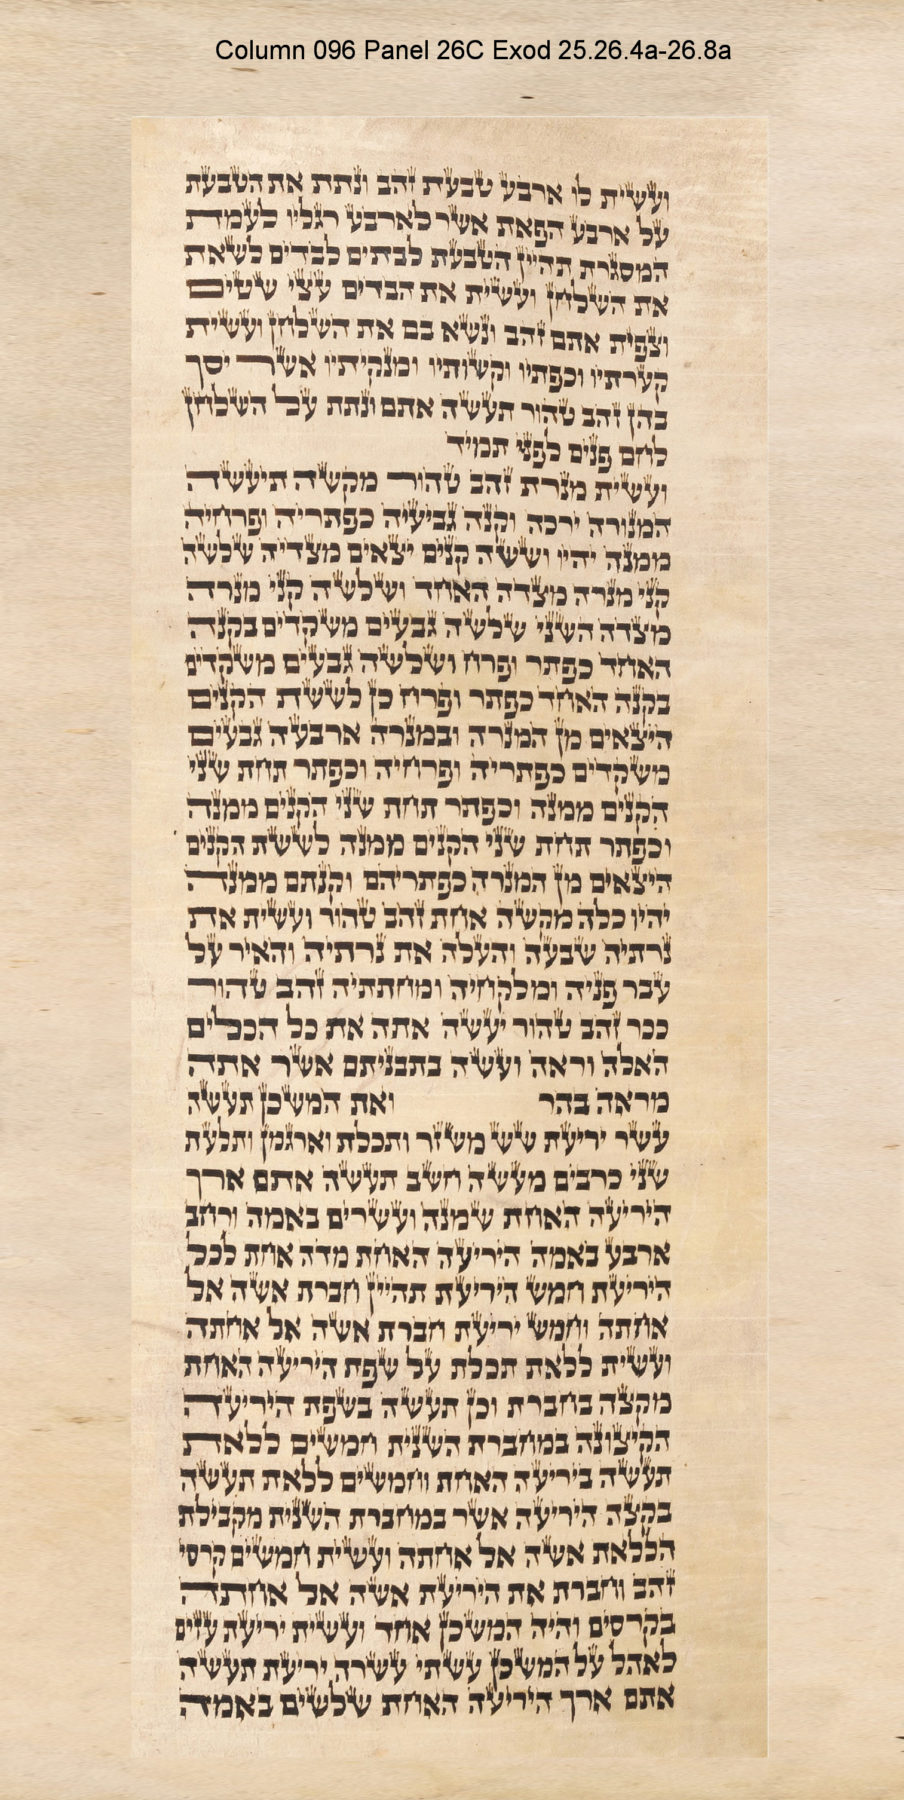 Column 096 Panel 26C Exod 25.26.4a-26.8a
ועשית לו ארבע טבעת זהב ונתת את הטבעת
על ארבע הפאת אשר לארבע רגליו לעמת
המסגרת תהיין הטבעת לבתים לבדים לשאת
את השלחן ועשית את הבדים עצי שטים
וצפית אתם זהב ונשא בם את השלחן ועשית
קערתיו וכפתיו וקשותיו ומנקיתיו אשר יסך
בהן זהב טהור תעשה אתם ונתת על השלחן
לחם פנים לפני תמיד
ועשית מנרת זהב טהור מקשה תיעשה
המנורה ירכה וקנה גביעיה כפתריה ופרחיה
ממנה יהיו וששה קנים יצאים מצדיה שלשה
קני מנרה מצדה האחד ושלשה קני מנרה
מצדה השני שלשה גבעים משקדים בקנה
האחד כפתר ופרח ושלשה גבעים משקדים
בקנה האחד כפתר ופרח כן לששת הקנים
היצאים מן המנרה ובמנרה ארבעה גבעים
משקדים כפתריה ופרחיה וכפתר תחת שני
הקנים ממנה וכפתר תחת שני הקנים ממנה
וכפתר תחת שני הקנים ממנה לששת הקנים
היצאים מן המנרה כפתריהם וקנתם ממנה
יהיו כלה מקשה אחת זהב טהור ועשית את
נרתיה שבעה והעלה את נרתיה והאיר על
עבר פניה ומלקחיה ומחתתיה זהב טהור
ככר זהב טהור יעשה אתה את כל הכלים
האלה וראה ועשה בתבניתם אשר אתה
מראה בהר ואת המשכן תעשה
עשר יריעת שש משזר ותכלת וארגמן ותלעת
שני כרבים מעשה חשב תעשה אתם ארך
היריעה האחת שמנה ועשרים באמה ורחב
ארבע באמה היריעה האחת מדה אחת לכל
היריעת חמש היריעת תהיין חברת אשה אל
אחתה וחמש יריעת חברת אשה אל אחתה
ועשית ללאת תכלת על שפת היריעה האחת
מקצה בחברת וכן תעשה בשפת היריעה
הקיצונה במחברת השנית חמשים ללאת
תעשה ביריעה האחת וחמשים ללאת תעשה
בקצה היריעה אשר במחברת השנית מקבילת
הללאת אשה אל אחתה ועשית חמשים קרסי
זהב וחברת את היריעת אשה אל אחתה
בקרסים והיה המשכן אחד ועשית יריעת עזים
לאהל על המשכן עשתי עשרה יריעת תעשה
אתם ארך היריעה האחת שלשים באמה